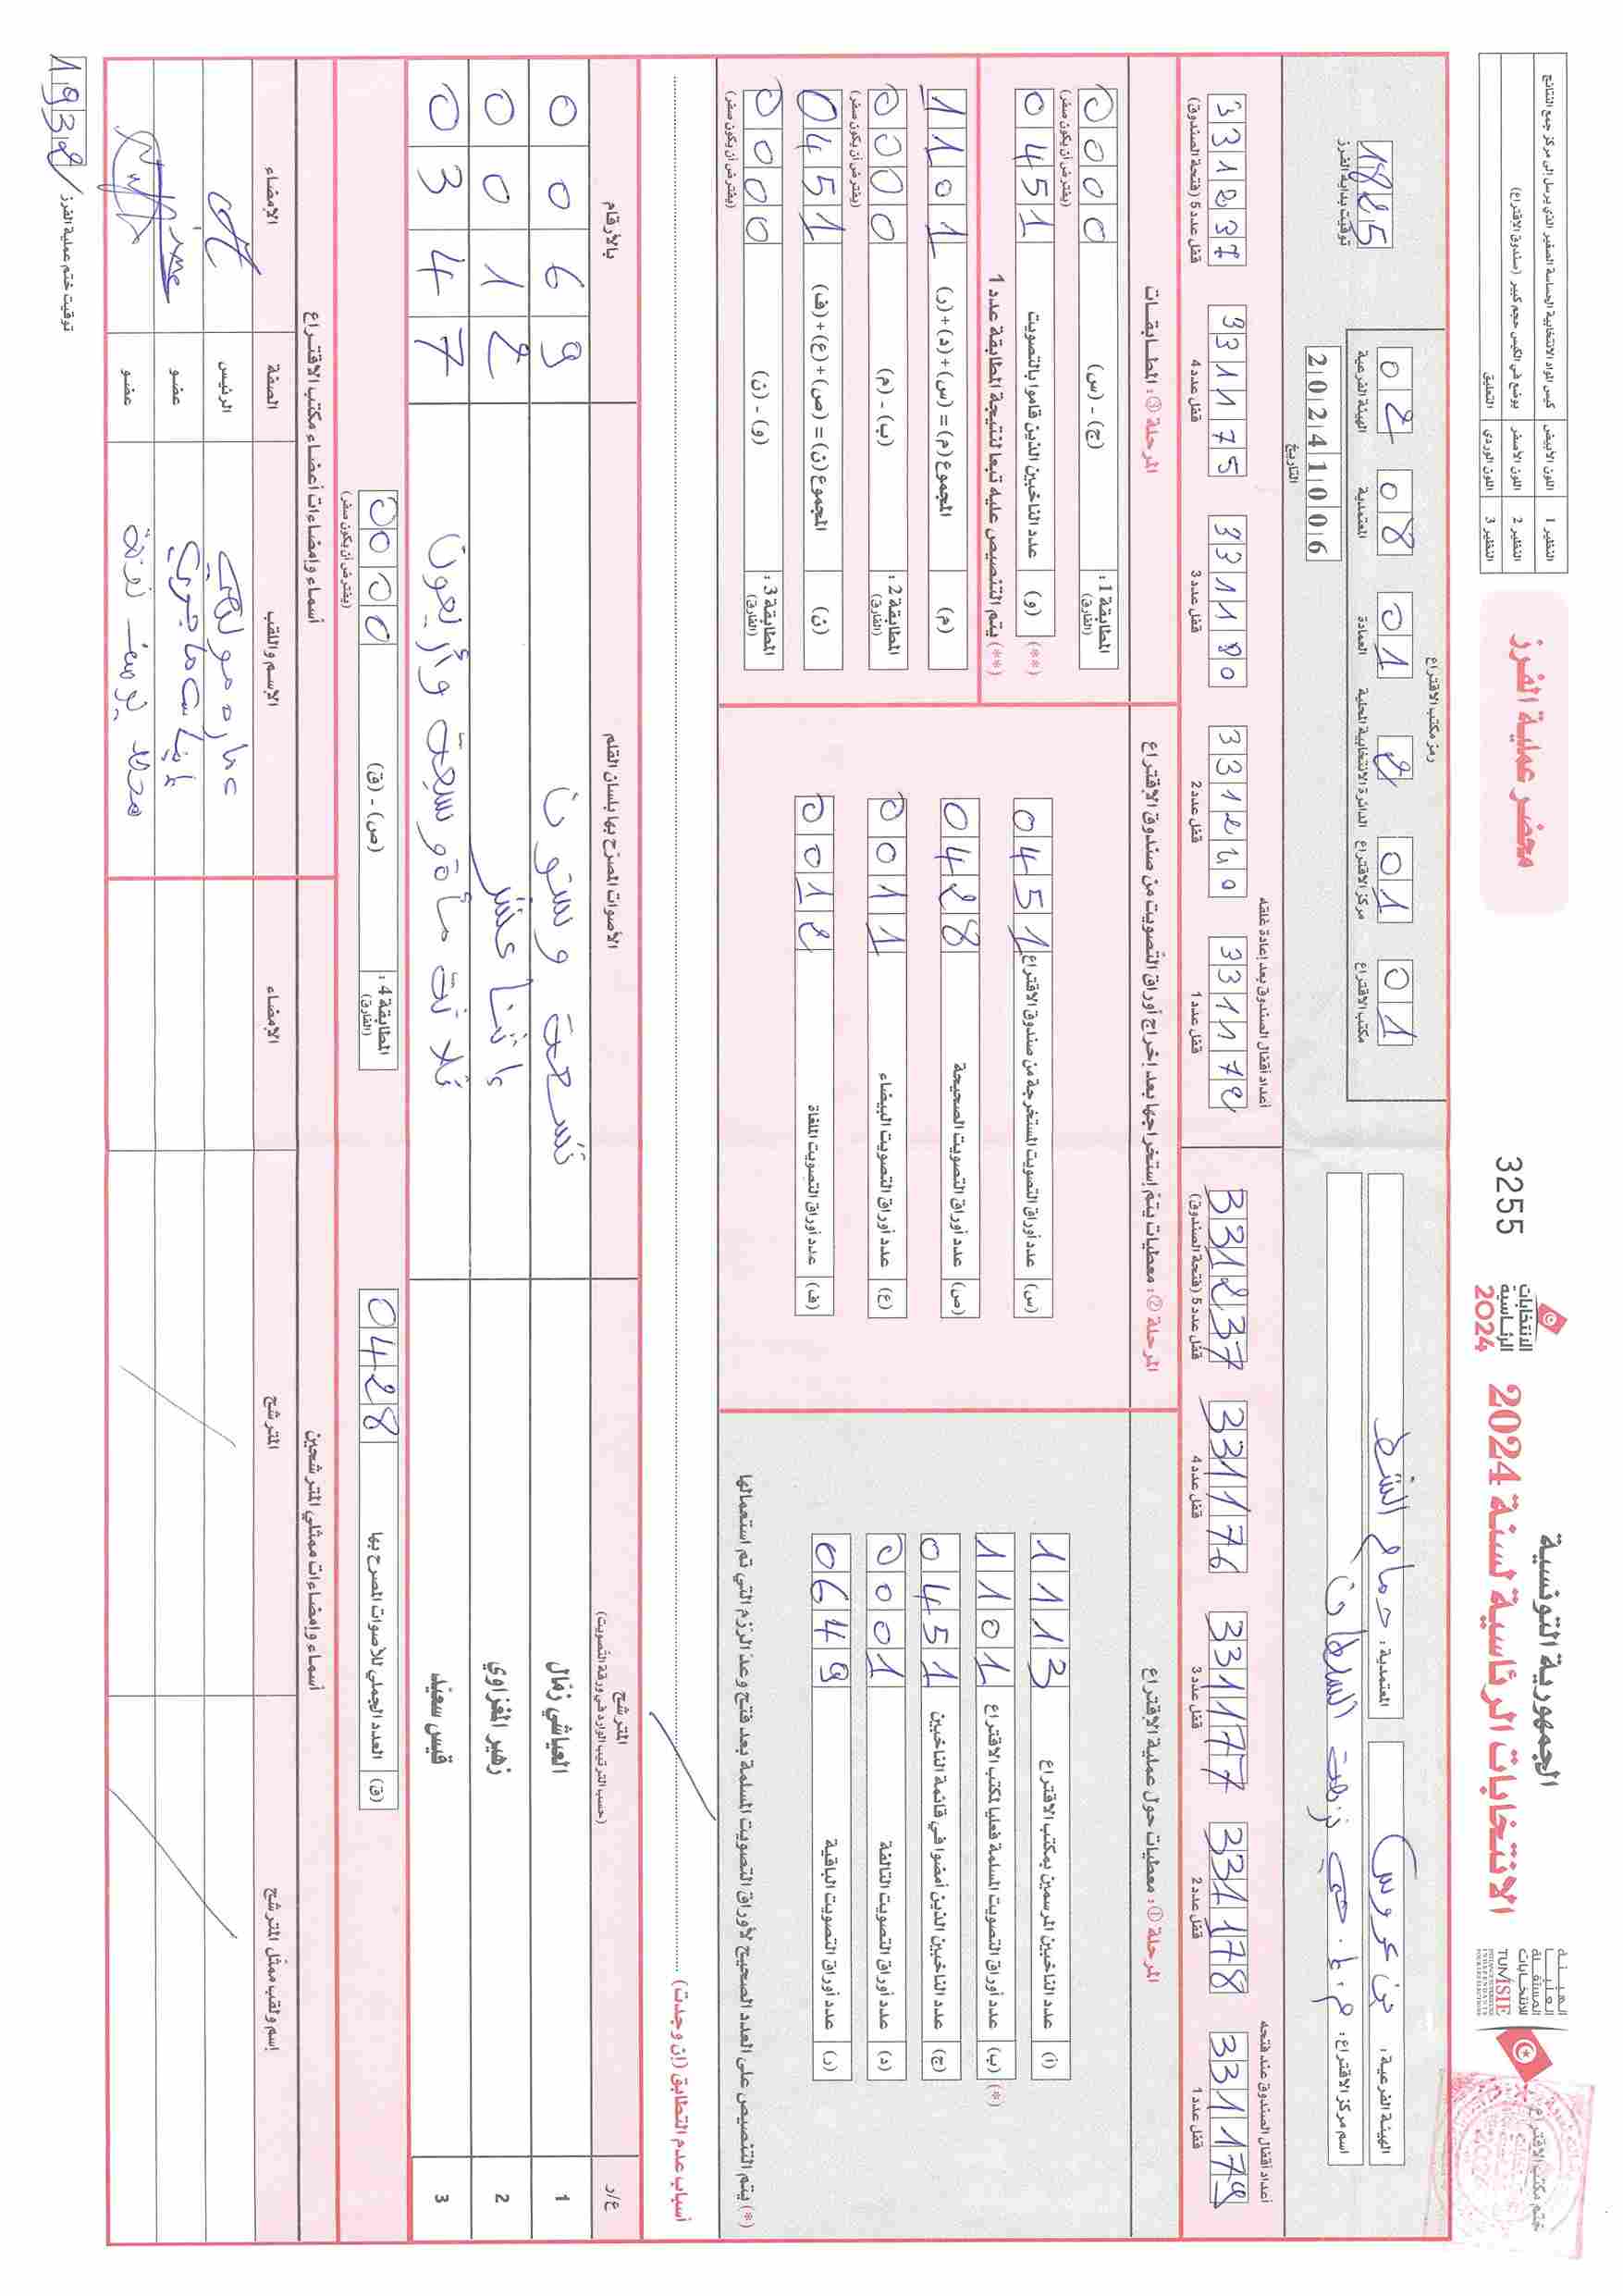 الجمهورية التونسية
الانتخابات الرئاسية لسنة 2024
الهيئة العليا المستقلة للانتخابات
TUNISIE
الانتخابات الرئاسية 2024
3255
محضر عملية الفرز
النظير 1 اللون الأبيض كيس المواد الانتخابية الحساسة الصغير الذي يرسل إلى مركز جمع النتائج
النظير 2 اللون الأصفر يوضع في الكيس حجم كبير (صندوق الاقتراع)
النظير 3 اللون الوردي التعليق
ختم مكتب الاقتراع
الهيئة الفرعية: بن عروس
المعتمدية: حمام الشط
اسم مركز الاقتراع:
رمز مكتب الاقتراع
02 08 01 2 01 01
الهيئة الفرعية المعتمدية العمادة الدائرة الانتخابية المحلية مركز الاقتراع مكتب الاقتراع
20241006
التاريخ
1825
توقيت بداية الفرز
أعداد أقفال الصندوق عند فتحه
331179 331178 331177 331176 331237
قفل عدد 1 قفل عدد 2 قفل عدد 3 قفل عدد 4 قفل عدد 5 (فتحة الصندوق)
أعداد أقفال الصندوق بعد إعادة غلقه
331172 331240 331180 331175 331237
قفل عدد 1 قفل عدد 2 قفل عدد 3 قفل عدد 4 قفل عدد 5 (فتحة الصندوق)
المرحلة ①: معطيات حول عملية الاقتراع
(أ) عدد الناخبين المرسمين بمكتب الاقتراع 1113
(ب) عدد أوراق التصويت المسلمة فعليا لمكتب الاقتراع 1101 (*)
(ج) عدد الناخبين الذين أمضوا في قائمة الناخبين 0451
(د) عدد أوراق التصويت التالفة 0001
(ر) عدد أوراق التصويت الباقية 0649
(*) يتم التنصيص على العدد الصحيح لأوراق التصويت المسلمة بعد فتح وعد الرزم التي تم استعمالها
المرحلة ②: معطيات يتم إستخراجها بعد إخراج أوراق التصويت من صندوق الاقتراع
(س) عدد أوراق التصويت المستخرجة من صندوق الاقتراع 0451
(ص) عدد أوراق التصويت الصحيحة 0428
(ع) عدد أوراق التصويت البيضاء 0011
(ف) عدد أوراق التصويت الملغاة 0012
المرحلة ③: المطابقات
المطابقة 1: (الفارق) (ج) - (س) 0000
(يفترض أن يكون صفر)
(**) (و) عدد الناخبين الذين قاموا بالتصويت 0451
(**) يتم التنصيص عليه تبعا لنتيجة المطابقة عدد 1
(م) المجموع (م) = (س)+(د)+(ر) 1101
المطابقة 2: (الفارق) (ب) - (م) 0000
(يفترض أن يكون صفر)
(ن) المجموع (ن) = (ص)+(ع)+(ف) 0451
المطابقة 3: (الفارق) (و) - (ن) 0000
(يفترض أن يكون صفر)
أسباب عدم التطابق (إن وجدت)
ع/ر المترشح (حسب الترتيب الوارد في ورقة التصويت) الأصوات المصرّح بها بلسان القلم بالأرقام
1 العياشي زمّال تسعة وستون 0069
2 زهير المغزاوي إثنا عشر 0012
3 قيس سعيّد ثلاثة مائة وسبعة وأربعون 0347
(ق) العدد الجملي للأصوات المصرح بها 0428
المطابقة 4: (الفارق) (ص) - (ق) 0000
(يفترض أن يكون صفر)
أسماء وإمضاءات ممثلي المترشحين
إسم ولقب ممثل المترشح المترشح الإمضاء
أسماء وإمضاءات أعضاء مكتب الاقتراع
الإسم واللقب الصفة الإمضاء
الرئيس
عضو
عضو
توقيت ختم عملية الفرز 1932